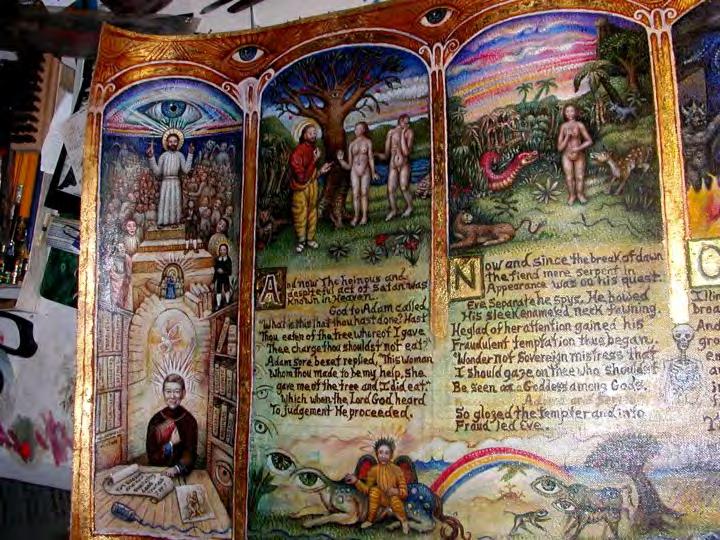 And now the heinous and
despiteful act of Satan was
known in Heaven.
God to Adam called
"What is this that thou hast done? Hast
Thou eaten of the tree whereof I gave
Thee charge thou shouldst not eat?"
Adam sore beset replied, "This woman
whom thou made to be my help, she
gave me of the tree and I did eat."
Which when the Lord God heard
To judgement He proceeded.
Now and since the break of dawn
the fiend mere serpent in
Appearance was on his quest.
Eve separate he spys. He bowed
His sleek enameled neck fawning.
He glad of her attention gained his
Fraudulent temptation thus began.
"Wonder not Sovereign mistress that
I should gaze on thee who shouldst
Be seen as a Goddess among Gods.
So glozed the tempter and into
Fraud led Eve.